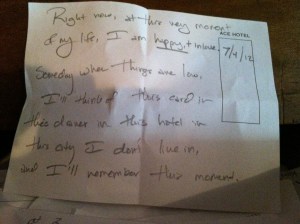 Right now, at this very moment
of my life, I am happy + in love.
ACE HOTEL
7/4/12
Someday when things are low,
I'll think of this card in
this drawer in this hotel in
this city I don't live in,
and I'll remember this moment.